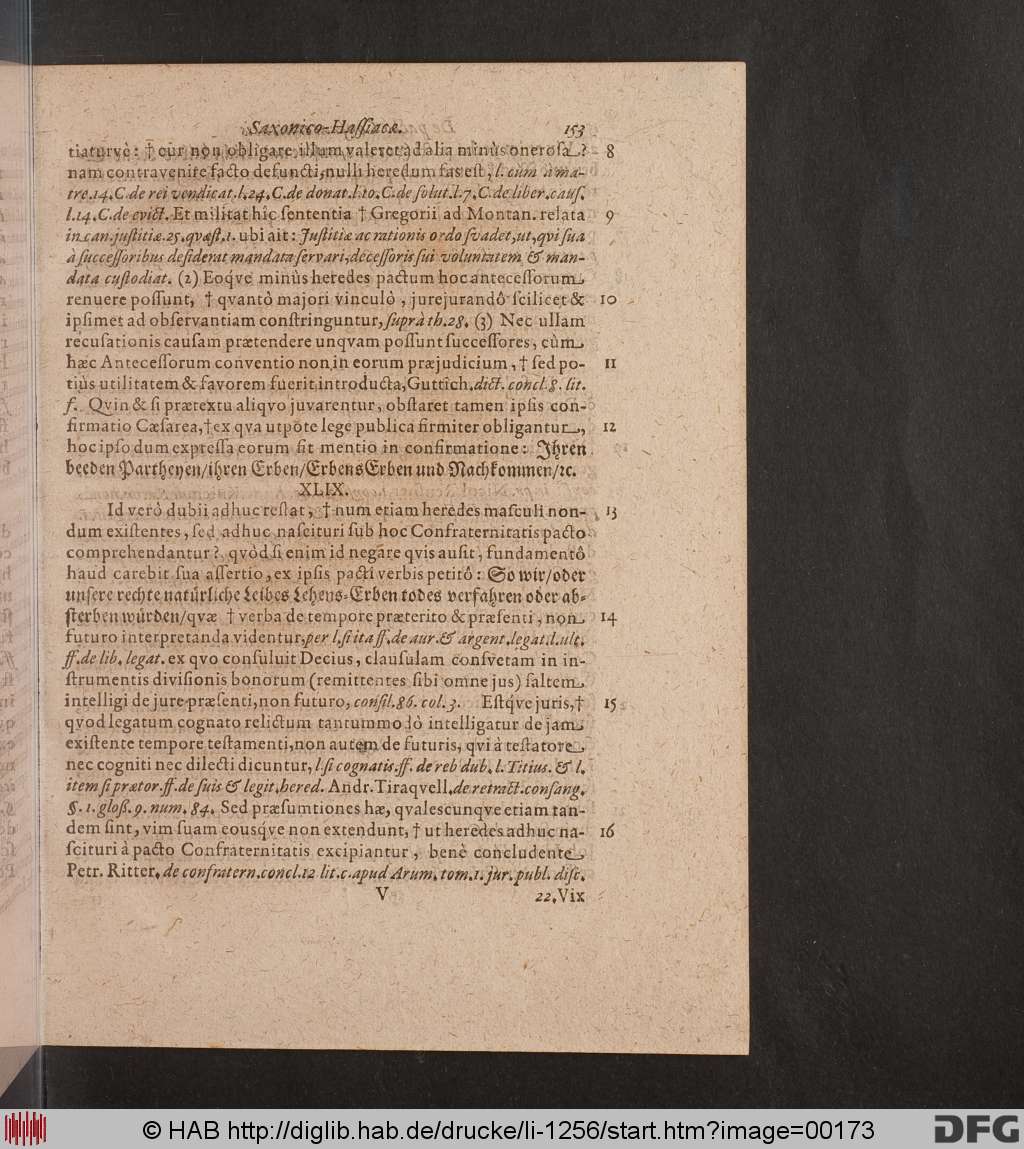 Saxonico-Hassiacæ. 153
tiaturvè: † cur non obligare illum valeret ad alia minùs onerosa? 8
nam contravenire facto defuncti, nulli heredum fas est, l. cùm à ma-
tre. 14. C. de rei vendicat. l. 24. C. de donat. l. 10. C. de solut. l. 7. C. de liber. caus.
l. 14. C. de evict. Et militat hîc sententia † Gregorii ad Montan. relata 9
in can. justitiæ. 25. qvæst. 1. ubi ait: Justitiæ ac rationis ordo svadet, ut, qvi sua
à successoribus desiderat mandata servari, decessoris sui voluntatem & man-
data custodiat. (2) Eoqve minùs heredes pactum hoc antecessorum
renuere possunt, † qvantò majori vinculô, jurejurandô scilicet & 10
ipsimet ad observantiam constringuntur, suprà th. 28. (3) Nec ullam
recusationis causam prætendere unqvam possunt successores, cùm
hæc Antecessorum conventio non in eorum præjudicium, † sed po- 11
tiùs utilitatem & favorem fuerit introducta, Guttich. dict. concl. 8. lit.
f. Qvin & si prætextu aliqvo juvarentur, obstaret tamen ipsis con-
firmatio Cæsarea, † ex qva utpote lege publica firmiter obligantur, 12
hoc ipso dum expressa eorum sit mentio in confirmatione: Ihren
beeden Partheyen/ ihren Erben/ Erbens Erben und Nachkommen/ ꝛc.
XLIX.
Id verò dubii adhuc restat, † num etiam heredes masculi non- 13
dum existentes, sed adhuc nascituri sub hoc Confraternitatis pacto
comprehendantur? qvòd si enim id negare qvis ausit, fundamentô
haud carebit sua assertio, ex ipsis pacti verbis petitô: So wir/ oder
unsere rechte natürliche Leibes Lehens-Erben todes verfahren oder ab-
sterben würden/ qvæ † verba de tempore præterito & præsenti, non 14
futuro interpretanda videntur, per l. si ita ff. de aur. & argent. legat. l. ult.
ff. de lib. legat. ex qvo consuluit Decius, clausulam consvetam in in-
strumentis divisionis bonorum (remittentes sibi omne jus) saltem
intelligi de jure præsenti, non futuro, consil. 86. col. 3. Estqve juris, † 15
qvod legatum cognato relictum tantummodò intelligatur de jam
existente tempore testamenti, non autem de futuris, qvi à testatore
nec cogniti nec dilecti dicuntur, l. si cognatis. ff. de reb dub. l. Titius. & l.
item si prætor. ff. de suis & legit. hered. Andr. Tiraqvell. de retract. consang.
§. 1. gloß. 9. num. 84. Sed præsumtiones hæ, qvalescunqve etiam tan-
dem sint, vim suam eousqve non extendunt, † ut heredes adhuc na- 16
scituri à pacto Confraternitatis excipiantur, benè concludente
Petr. Ritter. de confratern. concl. 12 lit. c. apud Arum. tom. 1. jur. publ. disc.
V 22. Vix
© HAB http://diglib.hab.de/drucke/li-1256/start.htm?image=00173
DFG